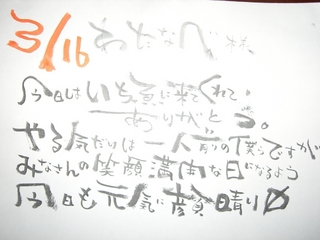 3/16 わたなべ様
今日はいち魚に来てくれて
ありがとう。
やる気だけは一人前の僕らですが
みなさんの笑顔満開な日になるよう
今日も元気に 晴り